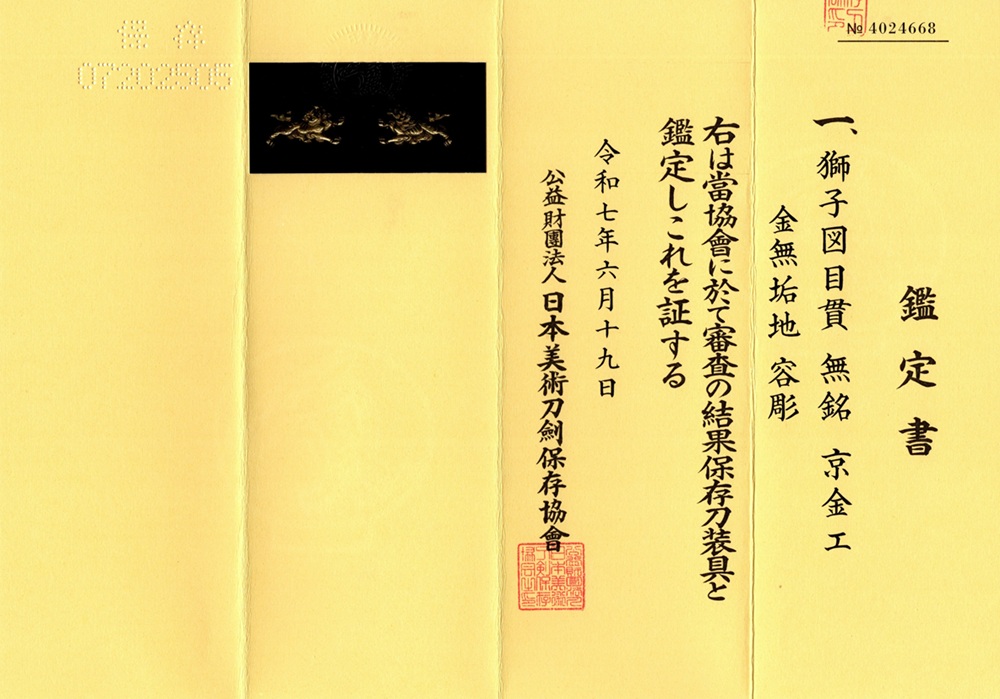 № 4024668
鑑定書
一、獅子図目貫 無銘 京金工
金無垢地 容彫
右は當協會に於て審査の結果保存刀装具と
鑑定しこれを証する
令和七年六月十九日
公益財團法人 日本美術刀劍保存協會
保存
07202505